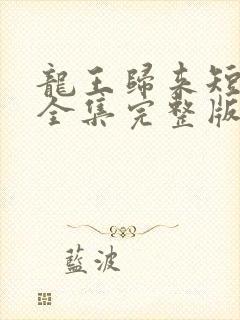 龍王歸來短
全集完整版
藍波